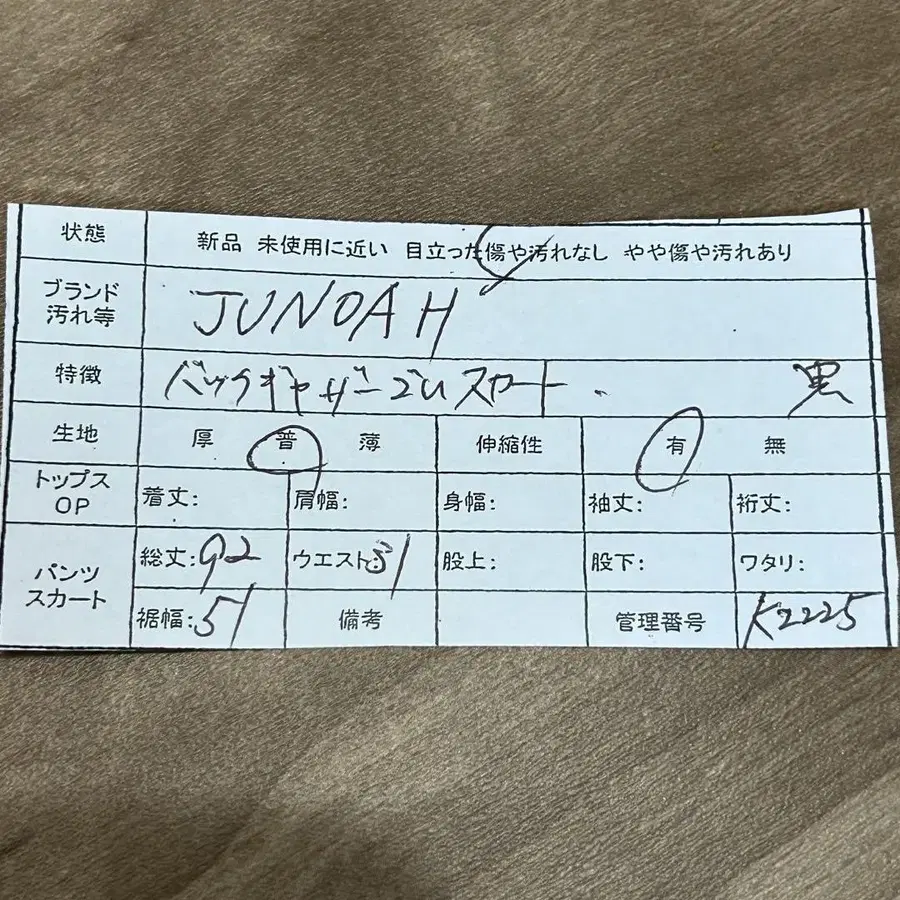 状態 新品 未使用に近い 目立った傷や汚れなし やや傷や汚れあり
ブランド
汚れ等 JUNOAH
特徴 バックギャザーゴムスカート 黒
生地 厚 普 薄 伸縮性 有 無
トップス
OP 着丈: 肩幅: 身幅: 袖丈: 裄丈:
パンツ
スカート 総丈:92 ウエスト:31 股上: 股下: ワタリ:
裾幅:51 備考 管理番号 K2225